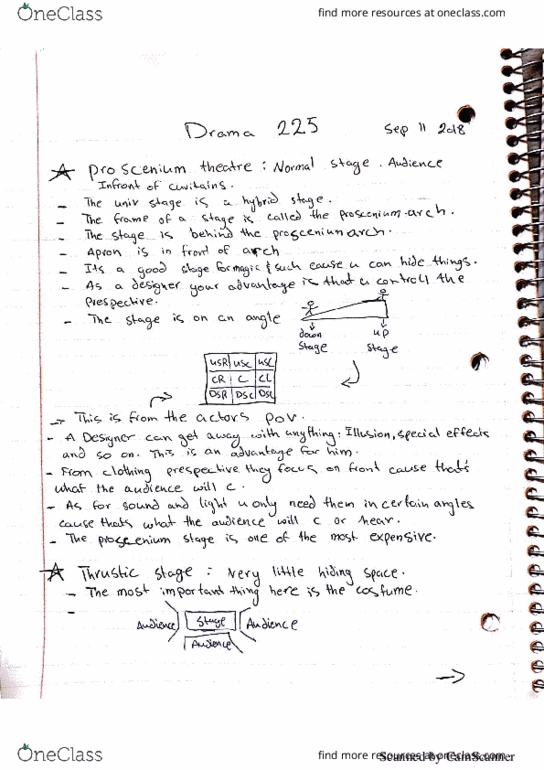 OneClass
find more resources at oneclass.com
Drama 225
Sep 11 2018
proscenium theatre : Normal stage. Audience
Infront of cwitains.
- The univ stage is a hybrid stage.
- The frame of a stage is called the proscenium-arch.
- The stage is behind the proscenium arch.
- Apron is in front of arch
- Its a good stage for magic & such cause u can hide things.
- As a designer your advantage is that u controll the
prespective.
- The stage is on an angle
down
stage
up
stage
USR USC USL
CR C CL
DSR DSC DSL
→ This is from the actors pov.
- A Designer can get away with anything: Illusion, special effects
and so on. This is an advantage for him.
- From clothing prespective they focus on front cause thats
what the audience will c.
- As for sound and light u only need them in certain angles
cause thats what the audience will c or hear.
- The proscenium stage is one of the most expensive.
Thrustic stage : very little hiding space.
- The most important thing here is the costume.
-
Audience Stage Audience
Audience
OneClass
find more resources at oneclass.com
Scanned by CamScanner